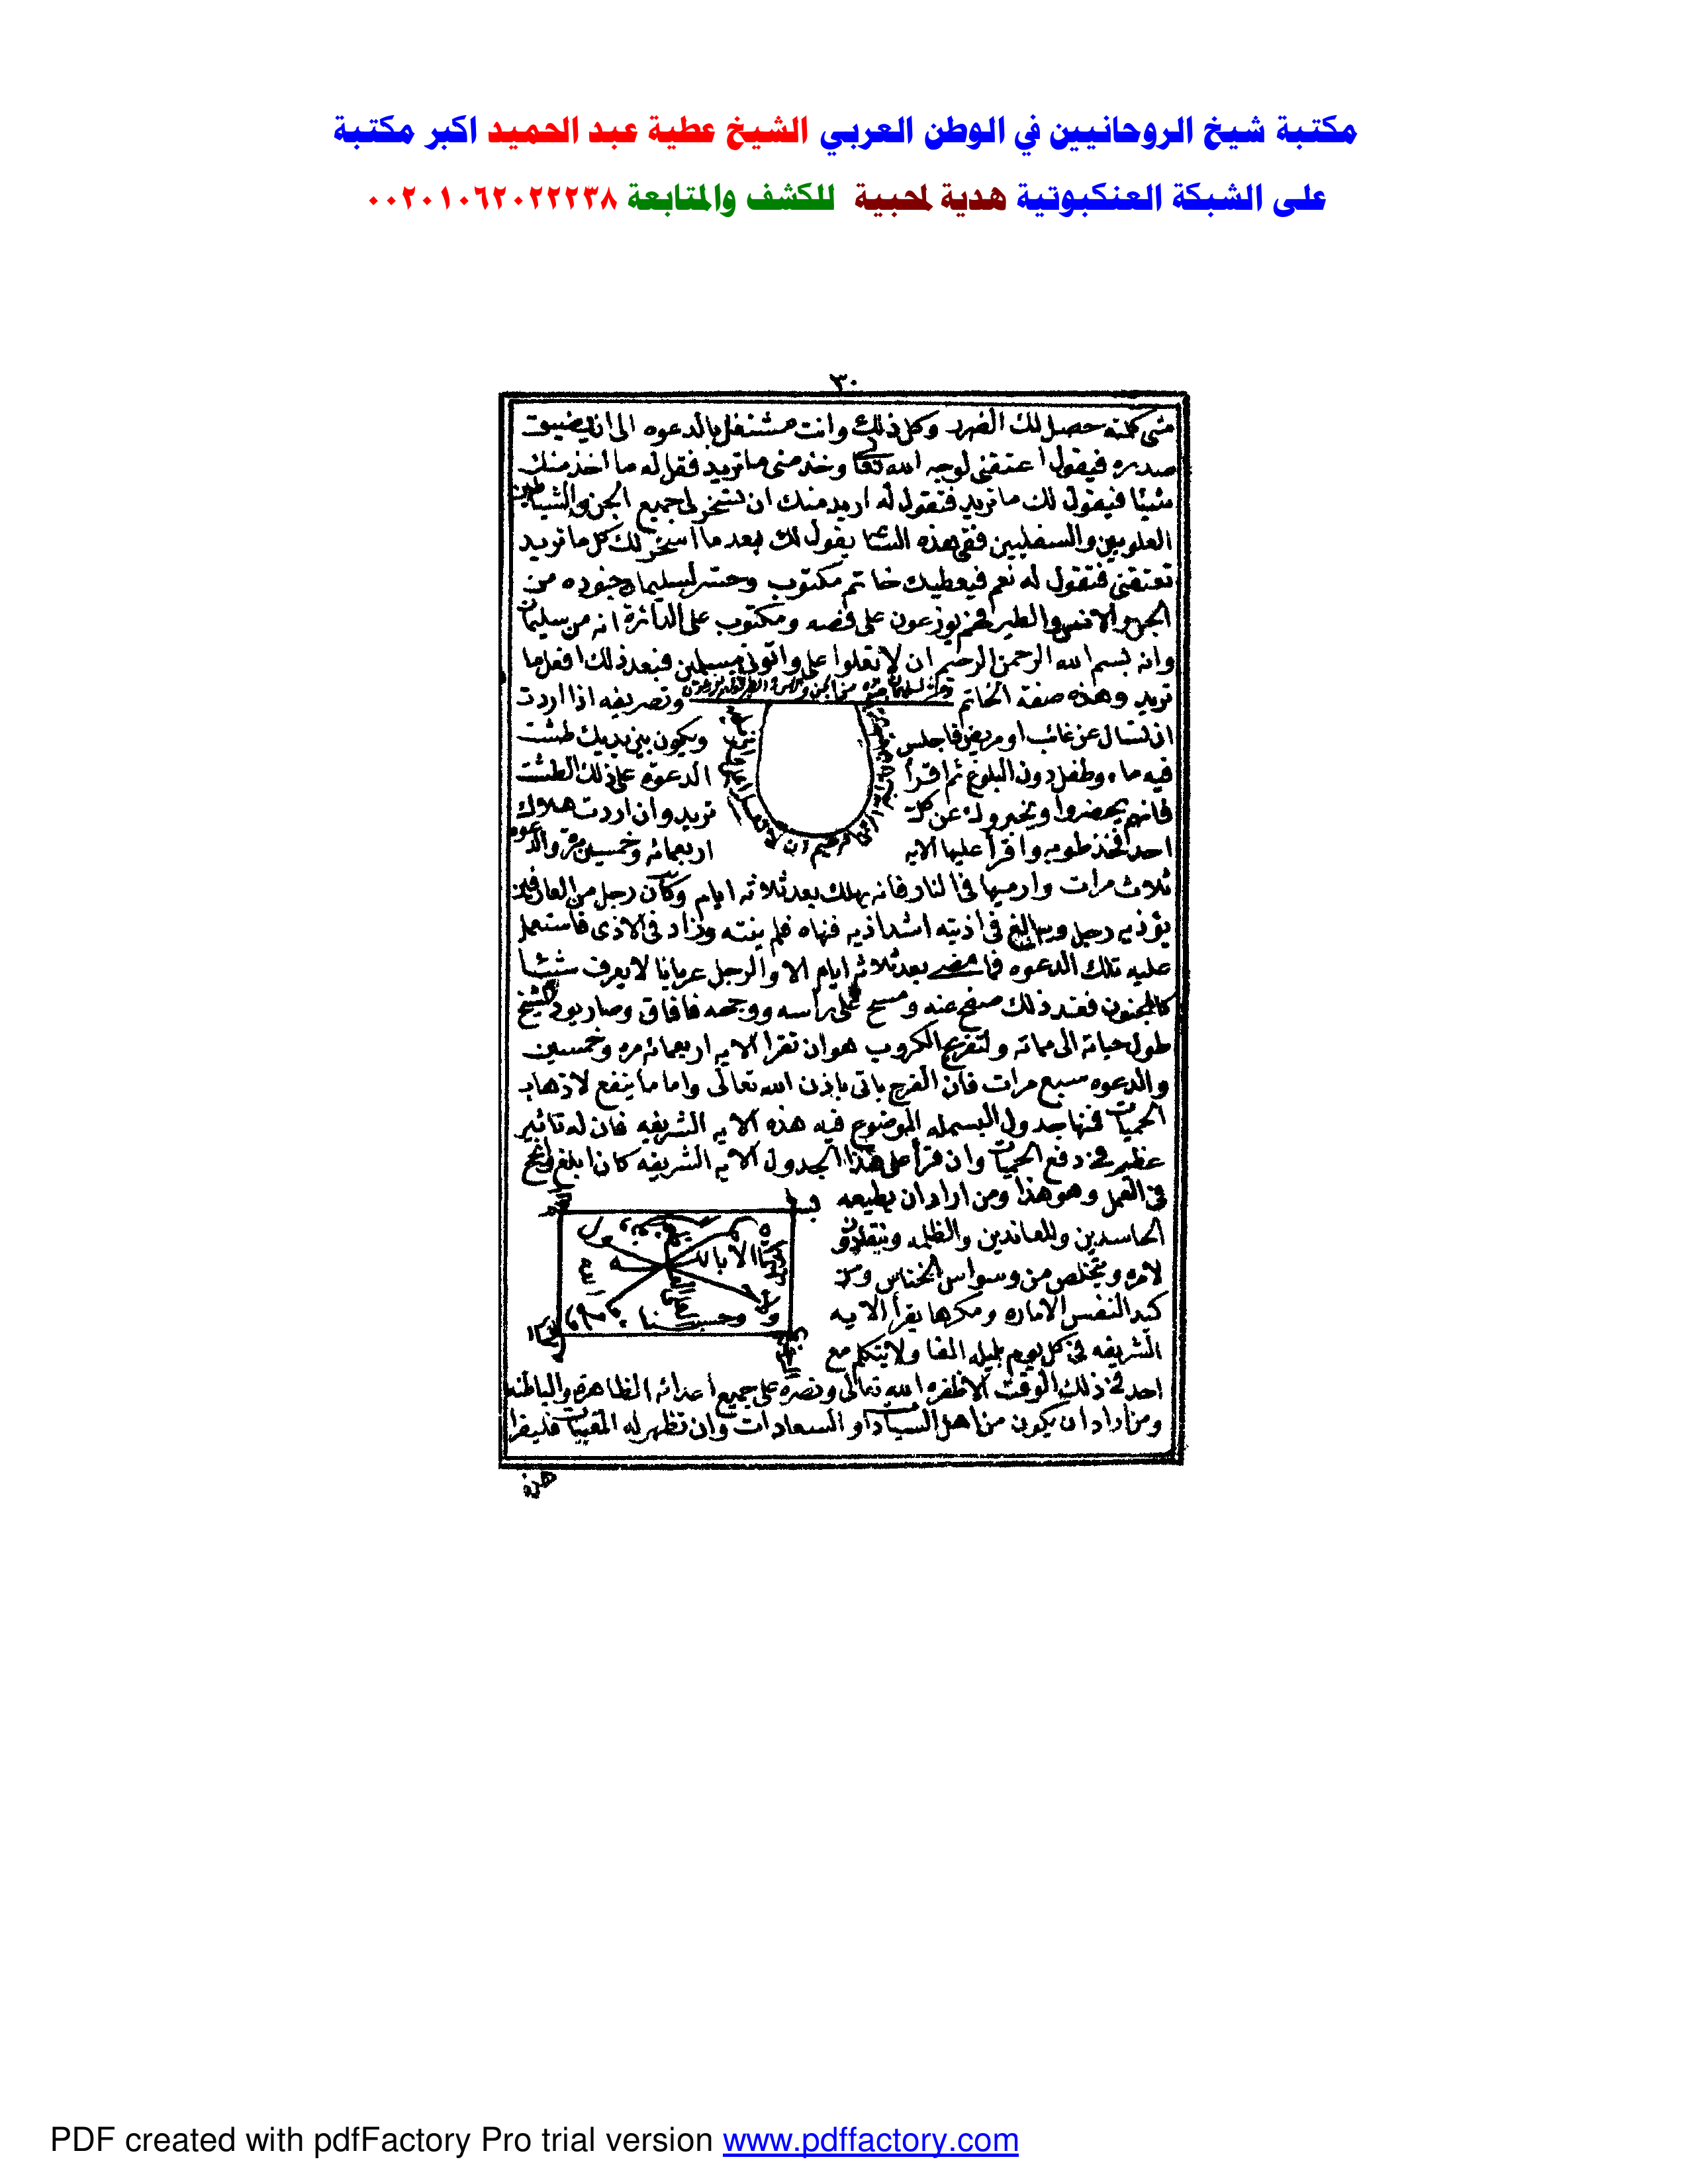 مكتبة شيخ الروحانيين في الوطن العربي الشيخ عطية عبد الحميد اكبر مكتبة
على الشبكة العنكبوتية هدية لمحبية للكشف والمتابعة ٠٠٢٠١٠٦٢٠٢٢٢٣٨
٣٠
متى كلمته حصل لك الضرر وكل ذلك وانت مشتغل بالدعوه الى ان يضيق
صدره فيقول اعتقنى لوجه الله تعالى وخذ منى ما تريد فقل له ما اخذ منك
شيئا فيقول لك ما تريد فتقول له اريد منك ان تسخر لى جميع الجن والشياطين
العلويين والسفليين ففى هذه يقول لك بعد ما اسخر لك كل ما تريد
تعتقنى فتقول له نعم فيعطيك خاتم مكتوب وحشر لسليمان جنوده من
الجن والانس والطير فهم يوزعون على فصه ومكتوب على الدائرة انه من سليمان
وانه بسم الله الرحمن الرحيم ان لا تعلوا على واتونى مسلمين فبعد ذلك افعل ما
تريد وهذه صفة الخاتم وتصريفه اذا اردت
ان تسال عن غائب او مريض فاجلس ويكون بين يديك طشت
فيه ماء وطفل دون البلوغ ثم اقرأ الدعوة على ذلك الطشت
فانهم يحضروا ويخبروك عن كل تريد وان اردت هلاك
احد فخذ طوبه واقرأ عليها الايه اربعمائه وخمسين مرة والدعوه
ثلاث مرات وارميها فى النار فانه يهلك بعد ثلاثه ايام وكان رجل من العارفين
يؤذيه رجل فى اذيته اشد اذيه فنهاه فلم ينته وزاد فى الاذى فاستعمل
عليه تلك الدعوه فما مضى بعد ثلاثه ايام الا والرجل عريانا لا يعرف شيئا
كالمجنون فعند ذلك صفح عنه ومسح على رأسه ووجهه فافاق وصار يود الشيخ
طول حياته الى مماته ولتفريج الكروب هو ان تقرا الايه اربعمائه مره وخمسين
والدعوه سبع مرات فان الفرج ياتى باذن الله تعالى واما ما ينفع لاذهاب
الحميات فمنها جدول البسمله الموضوع فيه هذه الايه الشريفه فان له تاثير
عظيم فى دفع الحميات وان قرأ على هذا الجدول الايه الشريفه كان ابلغ وانجح
فى العمل وهو هذا ومن اراد ان يطيعه
الحاسدين والمعاندين والظلمه
لامره ويتخلص من وسواس الخناس ومن
كيد النفس الاماره ومكرها يقرأ الايه
الشريفه فى كل يوم وليله الفا ولا يتكلم مع
احد فى ذلك الوقت الا ظفره الله تعالى ونصره على جميع اعدائه الظاهرة والباطنه
ومن اراد ان يكون من اهل او السعادات وان تظهر له المغيبات فليقرا
هذه
PDF created with pdfFactory Pro trial version www.pdffactory.com